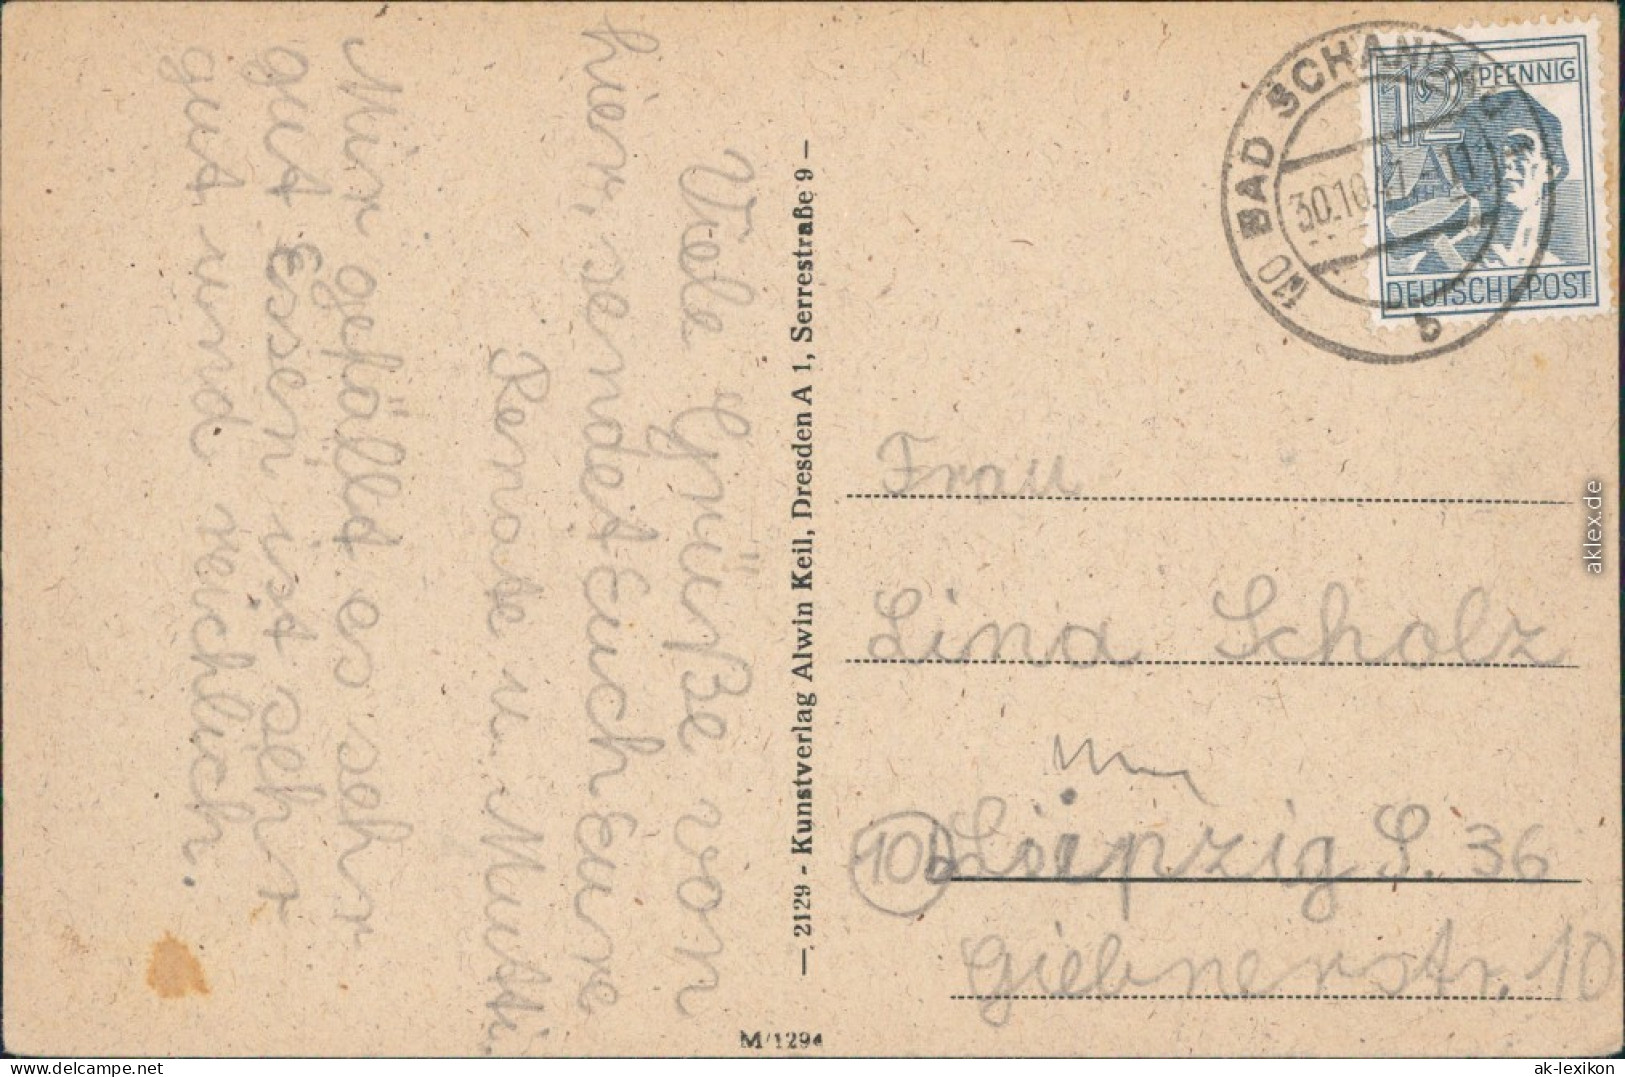 Viele Grüße von
hier, sendet Euch Eure
Renate u. Mutti
Mir gefällt es sehr
gut Essen ist sehr
gut und reichlich.
— 2129 - Kunstverlag Alwin Keil, Dresden A 1, Serrestraße 9 —
M/1294
BAD SCHANDAU
30.10.47
b
12 PFENNIG
DEUTSCHE POST
Frau
Lina Scholz
10b Leipzig S. 36
Giebnerstr. 10
aklex.de
www.delcampe.net
ak-lexikon